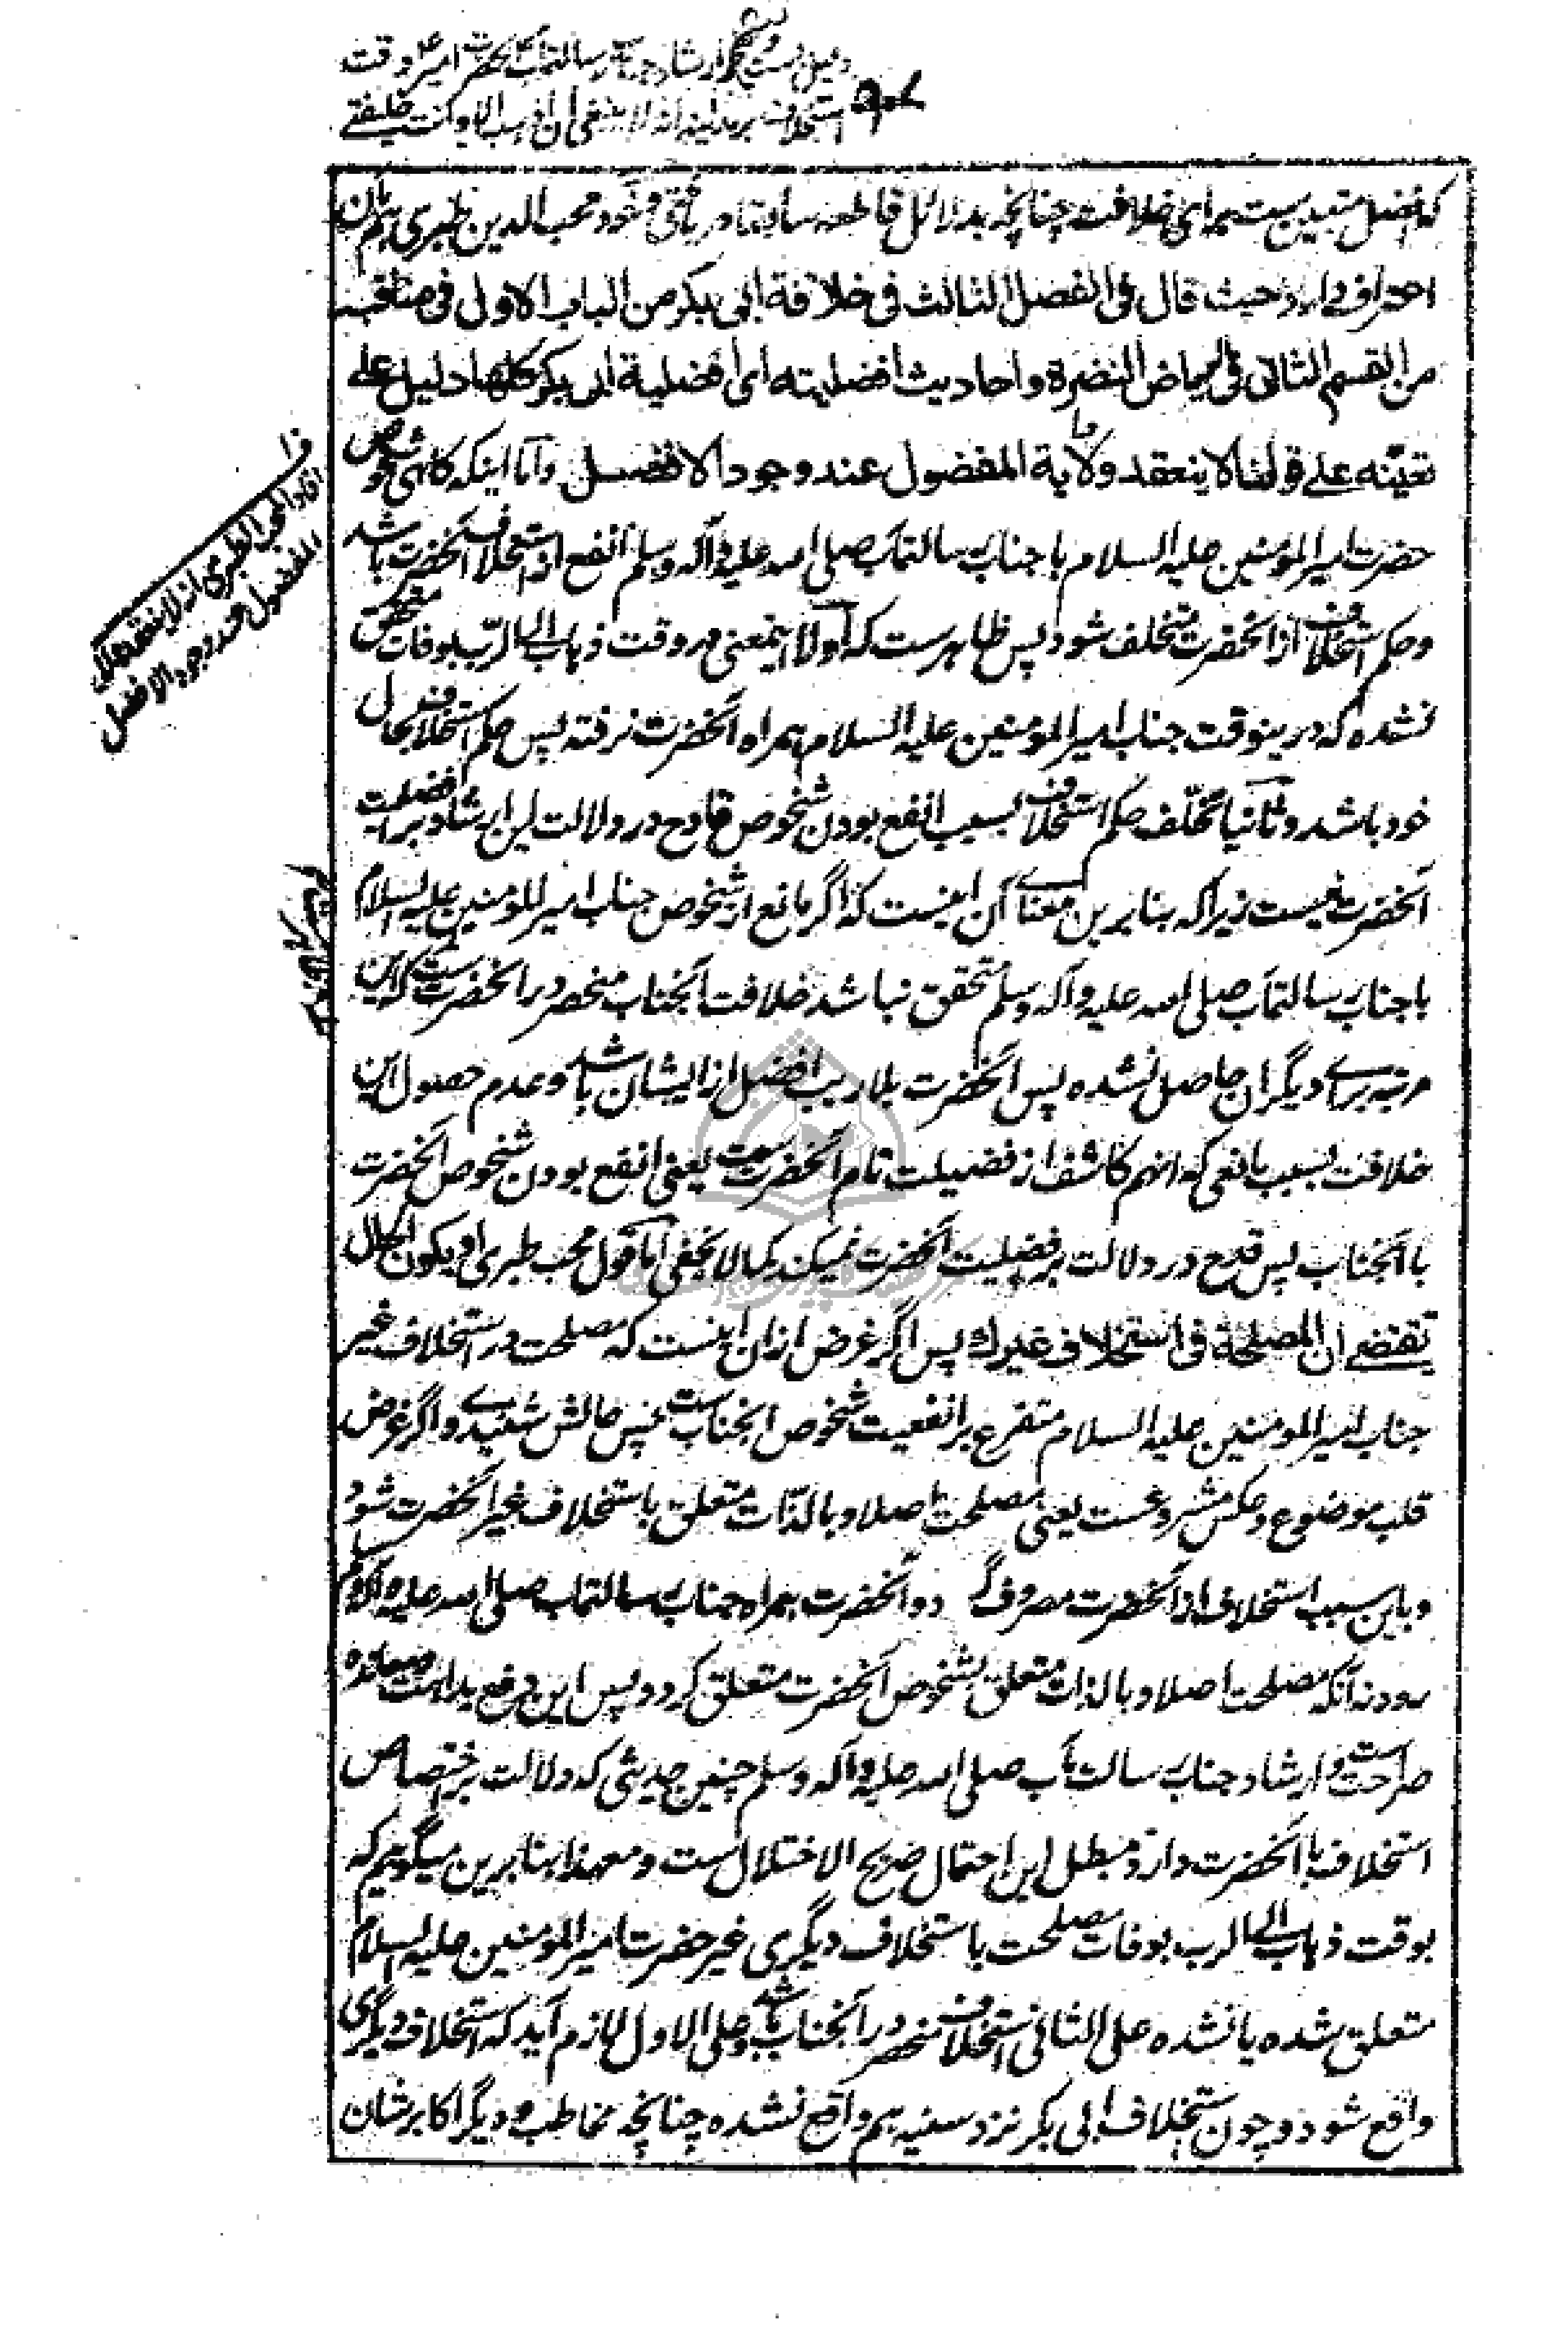 دلیل بست و ارشاد جناب رسالتمآب بحضرت امیر ع وقت
استخلاف بر مدینه انه لا ینبغی ان اذهب الا و انت خلیفتی
که افضل متعین ست برای خلافت چنانچه بدلائل قاطعه سابقا دریافتی و خود محب الدین طبری هم بآن
اعتراف دارد حیث قال فی الفصل الثالث فی خلافة ابی بکر من الباب الاول فی مناقبه
من القسم الثانی فی الریاض النضرة و احادیث افضلیته ای افضلیة ابی بکر کلها دلیل علی
تعینه علی قولنا لا ینعقد ولایة المفضول عند وجود الافضل و اما اینکه گاهی شخوص
حضرت امیر المؤمنین علیه السلام با جناب رسالتمآب صلی الله علیه و آله و سلم انفع از استخلاف آنحضرت باشد
و حکم استخلاف از آنحضرت متخلف شود پس ظاهرست که اولا اینمعنی در وقت ذهاب الی الرب بوفات متحقق
نشده که درینوقت جناب امیر المؤمنین علیه السلام همراه آنحضرت نرفته پس حکم استخلاف بحال
خود باشد و ثانیا تخلف حکم استخلاف بسبب انفع بودن شخوص قادح در دلالت این ارشاد بر افضلیت
آنحضرت نیست زیرا که بنابرین معنای آن اینست که اگر مانع از شخوص جناب امیر المؤمنین علیه السلام
با جناب رسالتمآب صلی الله علیه و آله و سلم متحقق نباشد خلافت آنجناب منحصر در آنحضرت ست که این
مرتبه برای دیگران حاصل نشده پس آنحضرت بلا ریب افضل از ایشان باشد و عدم حصول این
خلافت بسبب مانعی که آنهم کاشف از فضیلت تام آنحضرت ست یعنی انفع بودن شخوص آنحضرت
با آنجناب پس قدح در دلالت بر افضلیت آنحضرت نمیکند کما لا یخفی اما قول محب طبری او یکون الحال
یقتضی ان المصلحة فی استخلاف غیرک پس اگر غرض ازان اینست که مصلحت در استخلاف غیر
جناب امیر المومنین علیه السلام متفرع بر انفعیت شخوص آنجناب ست پس حالش شنیدی و اگر غرض
قلب موضوع و عکس مشروع ست یعنی مصلحت اصلا و بالذات متعلق باستخلاف غیر آنحضرت شود
و باین سبب استخلاف از آنحضرت مصروف گردد و آنحضرت همراه جناب رسالتمآب صلی الله علیه و آله و سلم
رود نه آنکه مصلحت اصلا و بالذات متعلق بشخوص آنحضرت متعلق گردد پس این دفع بداهت و معانده
صراحت ست و ارشاد جناب رسالت مآب صلی الله علیه و آله و سلم چنین حدیثی که دلالت بر اختصاص
استخلاف با آنحضرت دارد مبطل این احتمال صریح الاختلال ست و معهذا بنابرین میگوییم که
بوقت ذهاب الی الرب بوفات مصلحت باستخلاف دیگری غیر حضرت امیر المؤمنین علیه السلام
متعلق شده یا نشده علی الثانی استخلاف منحصر در آنجناب باشد و علی الاول لازم آید که استخلاف دیگری
واقع شود و چون استخلاف ابی بکر نزد سنیه هم واقع نشده چنانچه مخاطب و دیگر اکابر شان
افاد المحب الطبری انه لا ینعقد ولایة
المفضول عند وجود الافضل